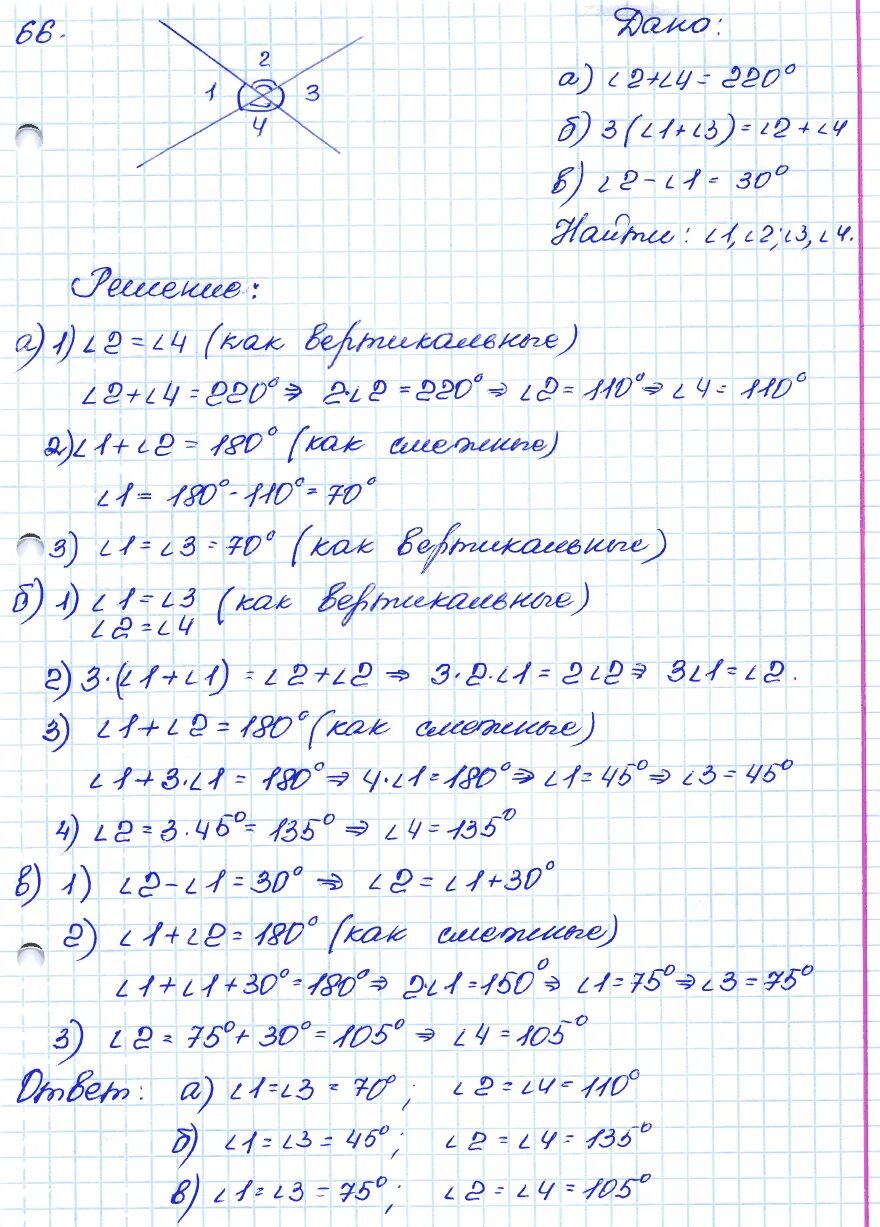 66.
2
1
3
4
Дано:
а) ∠2+∠4 = 220°
б) 3(∠1+∠3) = ∠2+∠4
в) ∠2-∠1 = 30°
Найти: ∠1, ∠2; ∠3, ∠4.
Решение:
а) 1) ∠2 = ∠4 (как вертикальные)
∠2+∠4 = 220° ⇒ 2∠2 = 220° ⇒ ∠2 = 110° ⇒ ∠4 = 110°
2) ∠1+∠2 = 180° (как смежные)
∠1 = 180° - 110° = 70°
3) ∠1 = ∠3 = 70° (как вертикальные)
б) 1) ∠1 = ∠3 (как вертикальные)
∠2 = ∠4
2) 3·(∠1+∠1) = ∠2+∠2 ⇒ 3·2·∠1 = 2∠2 ⇒ 3∠1 = ∠2.
3) ∠1+∠2 = 180° (как смежные)
∠1+3·∠1 = 180° ⇒ 4·∠1 = 180° ⇒ ∠1 = 45° ⇒ ∠3 = 45°
4) ∠2 = 3·45° = 135° ⇒ ∠4 = 135°
в) 1) ∠2-∠1 = 30° ⇒ ∠2 = ∠1+30°
2) ∠1+∠2 = 180° (как смежные)
∠1+∠1+30° = 180° ⇒ 2∠1 = 150° ⇒ ∠1 = 75° ⇒ ∠3 = 75°
3) ∠2 = 75° + 30° = 105° ⇒ ∠4 = 105°
Ответ: а) ∠1 = ∠3 = 70°; ∠2 = ∠4 = 110°
б) ∠1 = ∠3 = 45°; ∠2 = ∠4 = 135°
в) ∠1 = ∠3 = 75°; ∠2 = ∠4 = 105°